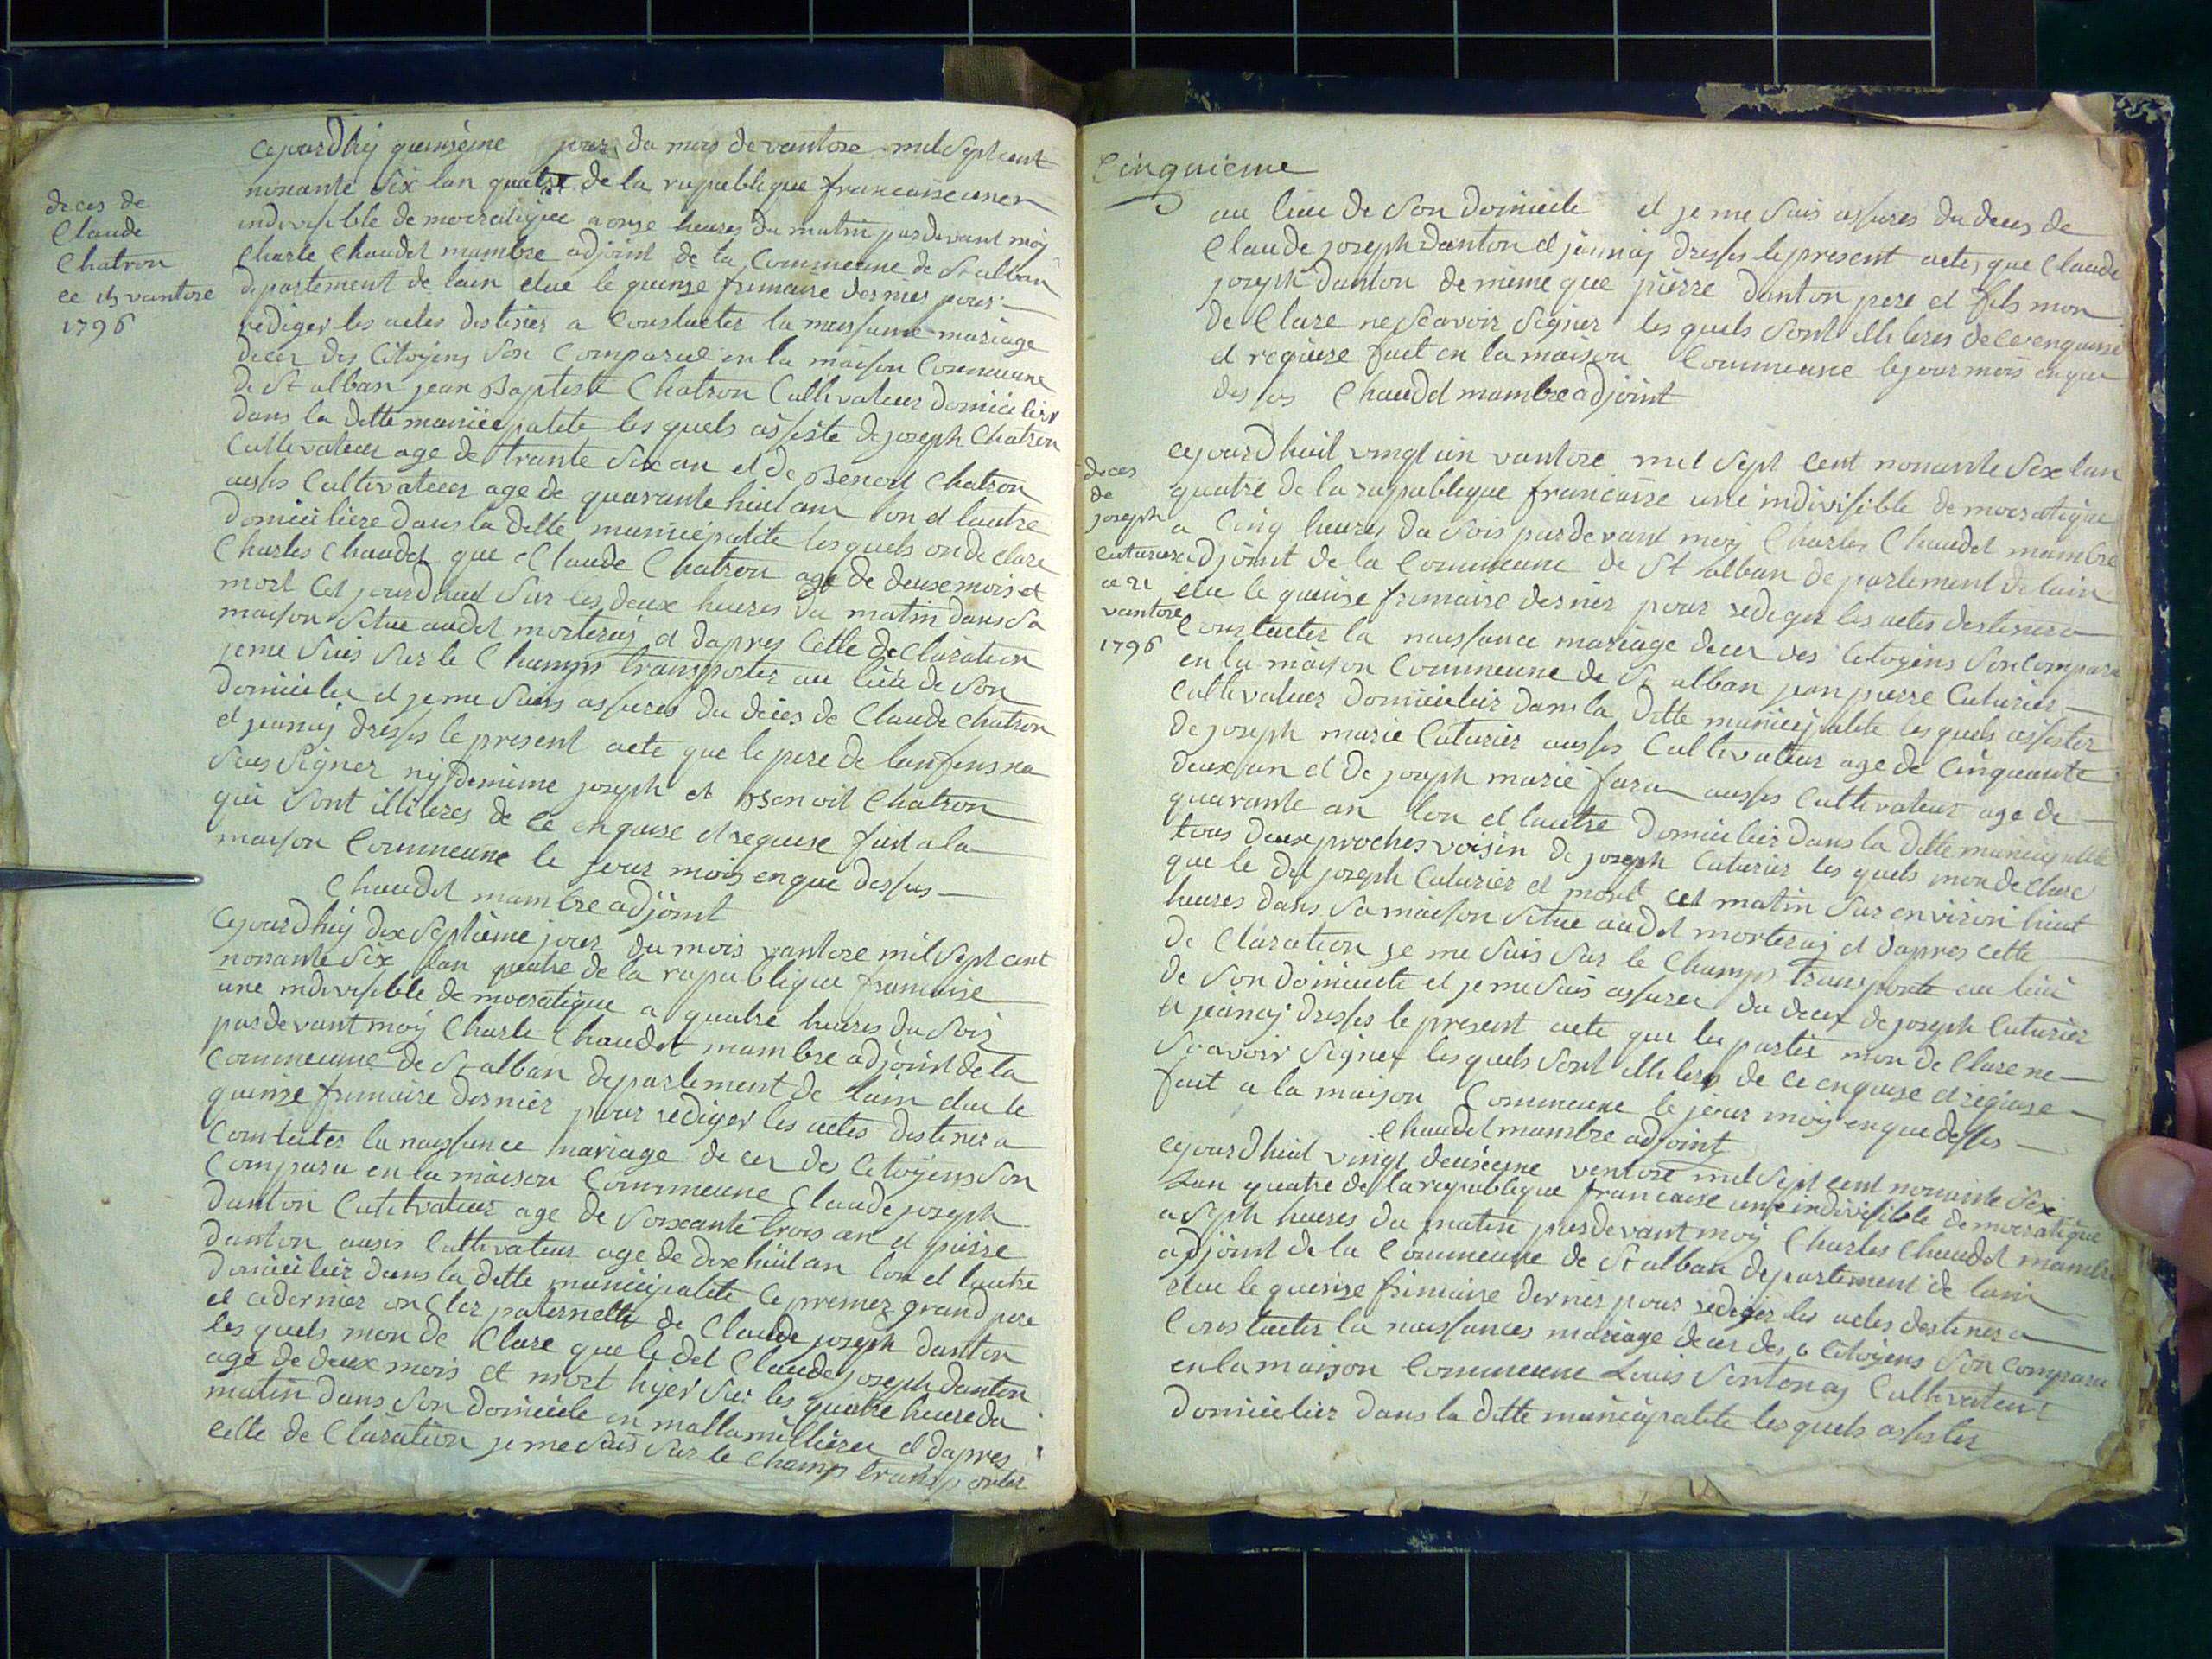 deces de
Claude
Chatron
ce 15 vantose
1796
cejourdhuy quinsieme jour du mois de vantose mil sept cent
nonante six lan quatre de la rupublique francaise une
indivisible democratique a onse heures du matin pardevant moy
Charle Chaudet mambre adjoint de la Commeune de St alban
departement de lain elue le quinse frimaire dernier pour
rediger les actes destinés a Constucter la naissance mariage
decer des Citoyens son Comparue en la maison Commeune
de St alban jean Baptiste Chatron Cultivateur domicilier
dans la ditte municipalite les quels assiste de joseph Chatron
Cultivateur age de trante six an et de Benoit Chatron
aussis Cultivateur age de quarante huit an lon et lautre
domicilière dans la ditte municipalite les quels on de clare
Charles Chaudet que Claude Chatron age de deuse mois et
mort cet jourdhuit sur les deux heures du matin dans sa
maison situe audet morteraj et dapres cette declaration
jeme suis sur le Champs transporter au lieu de son
domicile et je me suis assurés du déces de Claude Chatron
et jeanaj dressis le present acte que le pere de lanfens na
sus Signer nij demeime joseph et Benoit Chatron
qui sont illiteres de ce enquise et requise fait a la
maison Commeune le jour mois enque dessus
Chaudet mambre adjoint
cejourdhuy dix septieme jour du mois vantose mil sept cent
nonante six lan quatre de la rupublique francaise
une indivisible democratique a quatre heures du soir
pardevant moy Charle Chaudet mambre adjoint de la
Commeune de St alban departement de lain elue le
quinse frimaire dernier pour rediger les actes destiner a
Constucter la naissance mariage decer des Citoyens son
Comparu en la maison Commeune Claude joseph
danton Cultivateur age de soixante trois an et pierre
danton aussis Cultivateur age de dix huit an lon et lautre
domicilier dans la ditte municipalite le premer grand pere
et cedernier oncler paternelle de Claude joseph danton
les quels mon de Clare que le det Claude joseph danton
age de deux mois et mort hyer sur les quatre heure du
matin dans son domicile en mallamilliere et dapres
cette de Claration je me suis sur le Champ transporter
Cinquieme
au lieu de son domicile et je me suis assures du deces de
Claude joseph danton et jeannaj dressis le present acte, que Claude
joseph danton de meime que pierre danton pere et fils mon
de Clare ne scavoir signer les quels sont illiteres de ce enquise
et requise fait en la maison Commeune le jour mois enque
dessus Chaudet mambre adjoint
deces
de
joseph
Cuturier
ce 21
vantose
1796
cejourdhuit vingt un vantose mil sept cent nonante six lan
quatre de la rupublique francaise une indivisible democratique
a Cinq heures du soir pardevant moy Charles Chaudet mambre
adjoint de la Commeune de St alban departement de lain
elue le quinse frimaire dernier pour rediger les actes destiner a
Constucter la naissance mariage decer des Citoyens son Comparu
en la maison Commeune de St alban jean pierre Cuturier
Cultivateur domicilier dans la ditte municipalite les quels assister
de joseph marie Cuturier aussis Cultivateur age de Cinquante
deux an et de joseph marie fara aussis Cultivateur age de
quarante an lon et lautre domicilier dans la ditte municipalite
tous deux proches voisin de joseph Cuturier les quels mon de Clare
que le det joseph Cuturier et mort cet matin sur environ huit
heures dans sa maison situe audet morteraj et dapres cette
de Claration je me suis sur le Champs transporte au lieu
de son domicile et je me suis assurer du decer de joseph Cuturier
et jeanaj dressis le present acte que les partis mon de Clare ne
scavoir signer les quels sont illiteres de ce enquise et requise
fait a la maison Commeune le jour mois enque dessus
Chaudet mambre adjoint
cejourdhuit vingt deusieme ventose mil sept cent nonante six
Lan quatre de la republique francaise une indivisible democratique
a sept heures du matin pardevant moy Charles Chaudet mambre
adjoint de la Commeune de St alban departement de lain
elue le quinse frimaire dernier pour rediger les actes destiner a
Constucter la naissances mariage decer des Citoyens son comparu
en la maison Commeune Louis Sontonas Cultivateur
domicilier dans la ditte municipalite les quels assister